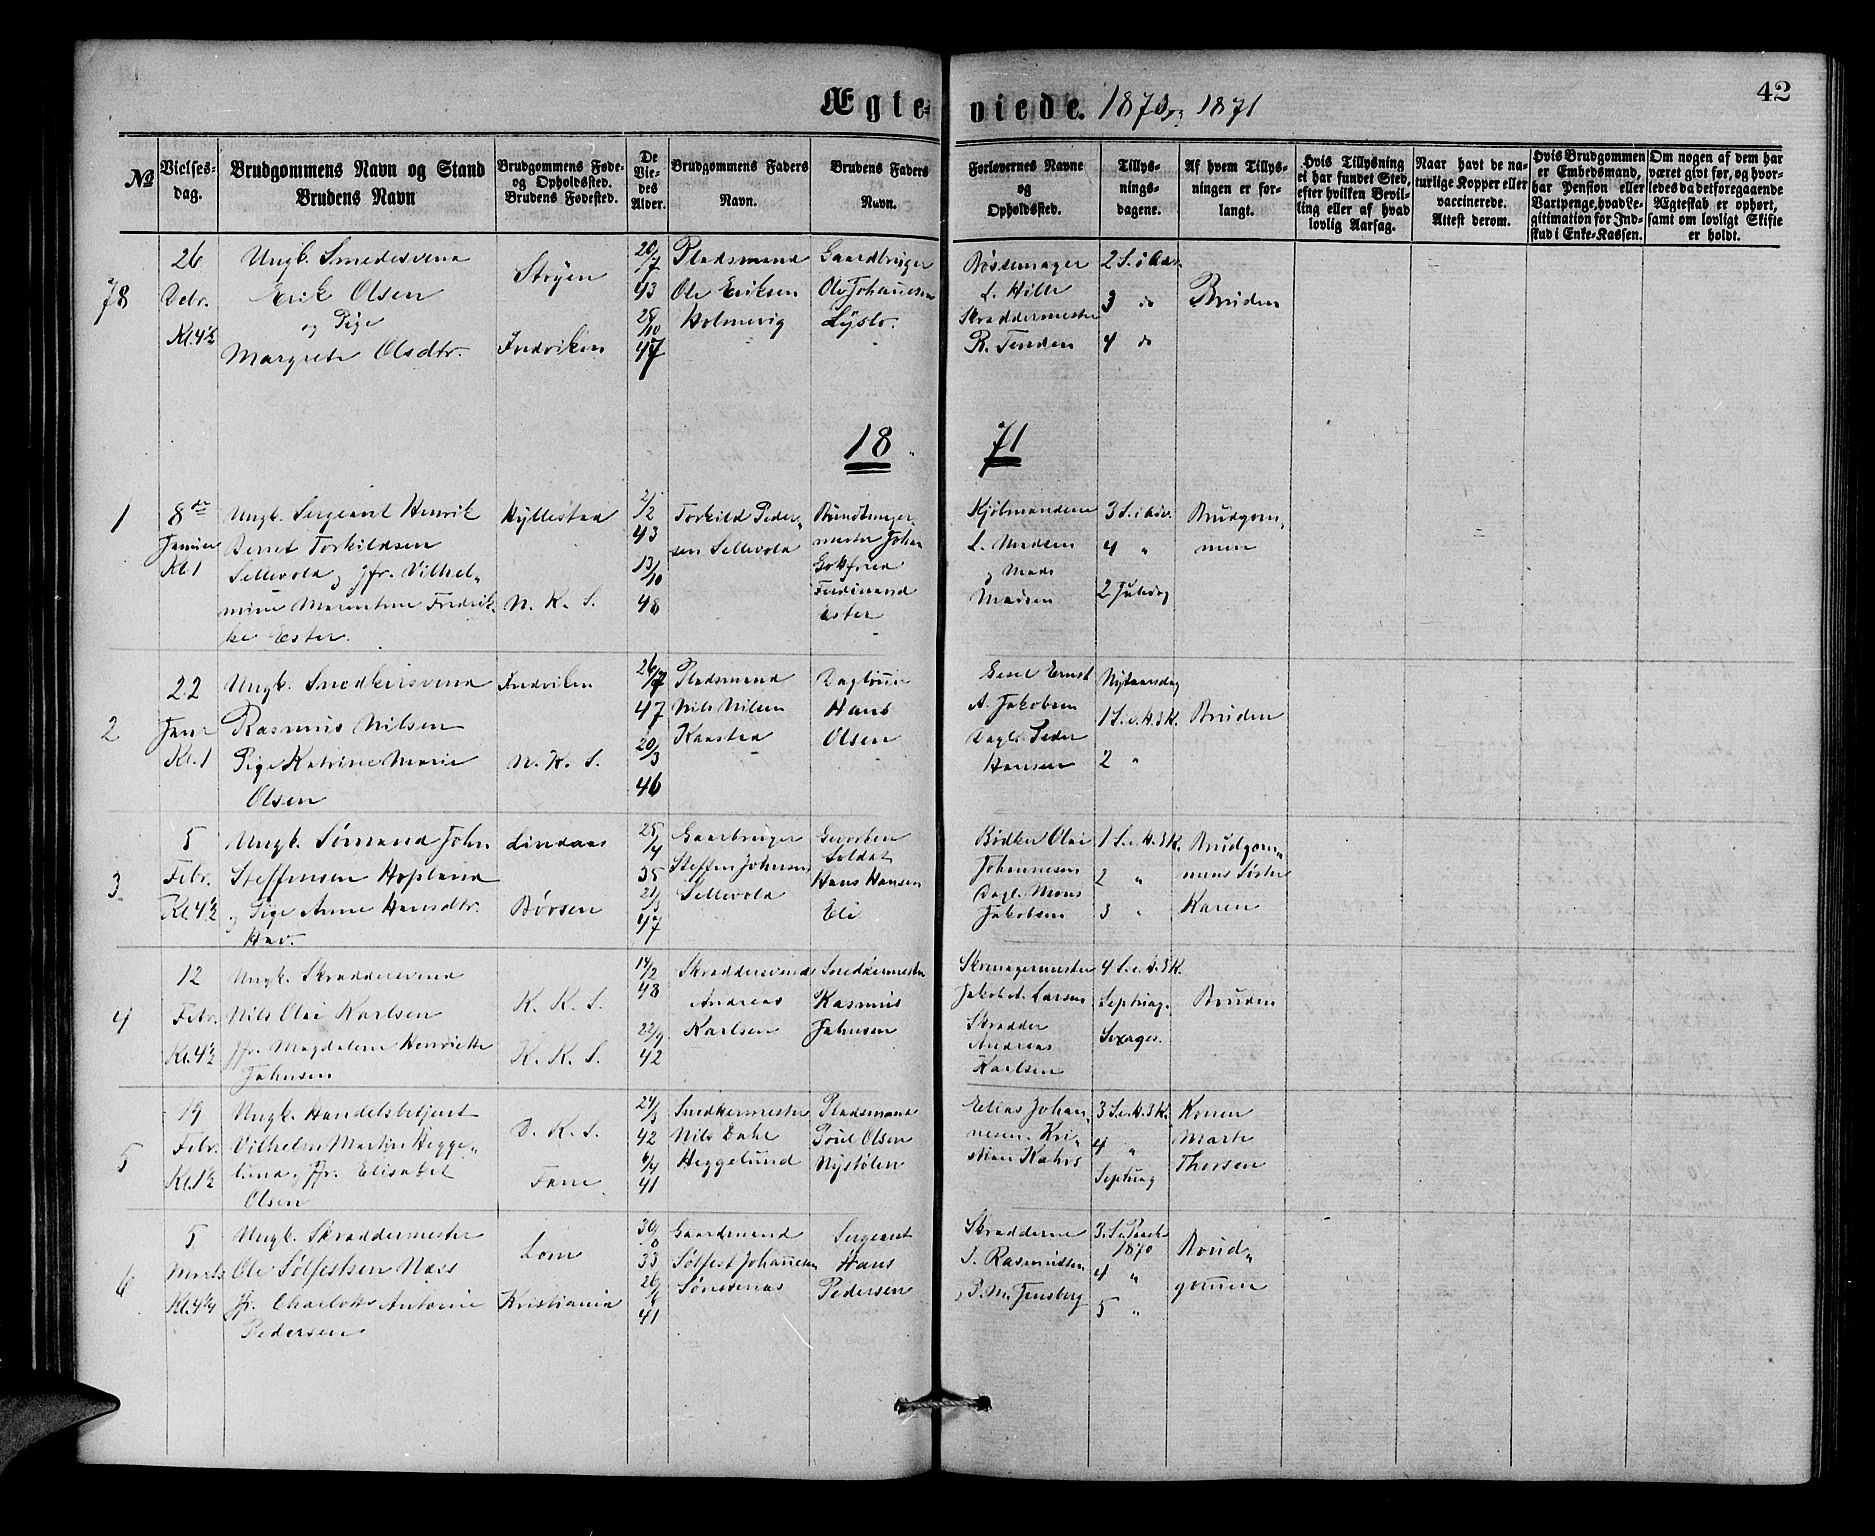 Ægte- viede. 1870 og 1871
42
No
Vielses-
dag.
Brudgommens Navn og Stand
Brudens Navn
Brudgommens Føde-
og Opholdssted.
Brudens Fødested.
De
Vie-
des
Alder.
Brudgommens Faders
Navn.
Brudens Faders
Navn.
Forlovernes Navne
og
Opholdssted.
Tillys-
nings-
dagene.
Af hvem Tillys-
ningen er for-
langt.
Hvis Tillysning
ei har fundet Sted,
efter hvilken Bevil-
ling eller af hvad
lovlig Aarsag.
Naar havt de na-
turlige Kopper eller
vaccinerede.
Attest derom.
Hvis Brudgommen
er Embedsmand,
har Pension eller
Vartpenge, hvad Le-
gitimation for Ind-
skud i Enke-Kassen.
Om nogen af dem har
været gift før, og hvor-
ledes da det foregaaende
Ægteskab er ophørt,
samt om lovligt Skifte
er holdt.
78
26
Debr.
Kl. 4½
Ungk. Smedesvend
Erik Olsen
og Pige
Margrete Olsdtr.
Strøen
Indviken
20/7
43
28/10
47
Pladsmand
Ole Eriksen
Holmevig
Gaardbruger
Ole Johannesen
Lysto.
Bøssemager
L. Hille
Skræddermester
R. Tenden
2 S. i Adv.
3 do
4 do
Bruden
18 71
1
8de
Januar
Kl. 1
Ungk. Sergeant Henrik
Bernt Torkildsen
Sellevold og Jfr. Vilhel-
mine Marentine Fredrik-
ke Ester.
Hyllestad
N. K. S.
2/2
43
13/10
48
Torkild Peder-
sen Sellevold
Bundtmager-
mester Johan
Gotfried
Ferdinand
Ester
Kjøbmændene
L. Madsen
og Mads
Madsen
3 S. i Adv.
4 "
2 Juledag
Brudgom-
men
2
22
Janr
Kl. 1
Ungk. Snedkersvend
Rasmus Nilsen
Pige Katrine Marie
Olsen
Indviken
N. K. S.
26/7
47
20/3
46
Pladsmand
Nils Nilsen
Kaastad
Daglønner
Hans
Olsen
Gesel Ernst
A. Jakobsen
Dagl. Peder
Hansen
Nytaarsdag
1 S. e. H. 3 K.
2 "
Bruden
3
5
Febr.
Kl. 4½
Ungk. Sømand John
Steffensen Hopland
og Pige Anne Hansdtr.
Hav.
Lindaas
Børsen
25/4
35
21/3
47
Gaarbruger
Steffen Johnsen
Sellevold
Gevorben
Soldat
Hans Hansen
Eli
Bødker Olai
Johannesen
Dagl. Mons
Jakobsen
1 S. e. H. 3 K.
2 "
3 "
Brudgom-
mens Søster
Karen
4
12
Febr.
Kl. 4½
Ungk. Skræddersvend
Nils Olai Karlsen
Jfr. Magdalene Henriette
Johnsen
K. K. S.
K. K. S.
14/2
48
22/9
42
Skræddersvend
Andreas
Karlsen
Snedkermester
Rasmus
Johnsen
Skomagermester
Jakob A. Larsen
Skrædder
Andreas
Karlsen
4 S. e. H. 3 K.
Septuag.
Sexages.
Bruden
5
19
Febr.
Kl. 1½
Ungk. Handelsbetjent
Vilhelm Martin Hegge-
lund, Jfr. Elisabet
Olsen
D. K. S.
Fane
24/3
42
6/4
41
Snedkermester
Nils Dahl
Heggelund
Pladsmand
Poul Olsen
Nystølen
Elias Johan-
nesen. Kri-
stian Kahrs
3 S. e. H. 3 K.
4 "
Septuag
Konen
Marte
Thorsen
6
5
Marts
Kl. 4¼
Ungk. Skræddermester
Ole Sølfestsen Næss
Jfr. Charlotte Antonie
Pedersen
Lom
Kristiania
33
41
Gaardmand
Sølfest Johannesen
Sergeant
Hans
Pedersen
Skrædderne
S. Rasmussen
3. S. e. Paaske
1870
4 "
5 "
Brud-
gommen